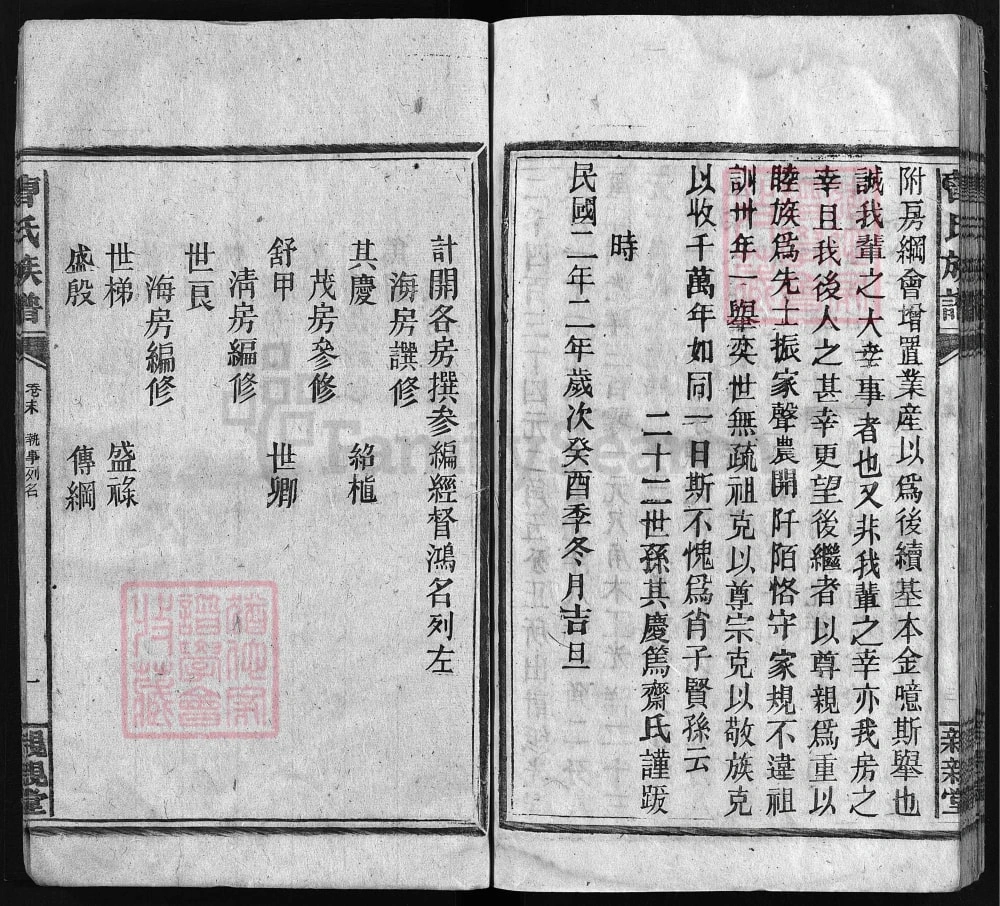 曹氏族譜
親親堂
附房綱會增置業產以爲後續基本金噫斯舉也
誠我輩之大幸事者也又非我輩之幸亦我房之
幸且我後人之甚幸更望後繼者以尊親爲重以
睦族爲先士振家聲農開阡陌恪守家規不違祖
訓卅年一舉奕世無疏祖克以尊宗克以敬族克
以收千萬年如同一日斯不愧爲肖子賢孫云
二十二世孫其慶篤齋氏謹跋
時
民國二年二年歲次癸酉季冬月吉旦
計開各房撰參編經督鴻名列左
海房譔修
其慶 紹植
茂房參修
舒甲
清房編修 世卿
世艮
海房編修
世梯 盛祿
盛殷 傳綱
曹氏族譜
卷末 執事列名
一
親親堂
猶他家
譜學會
收藏